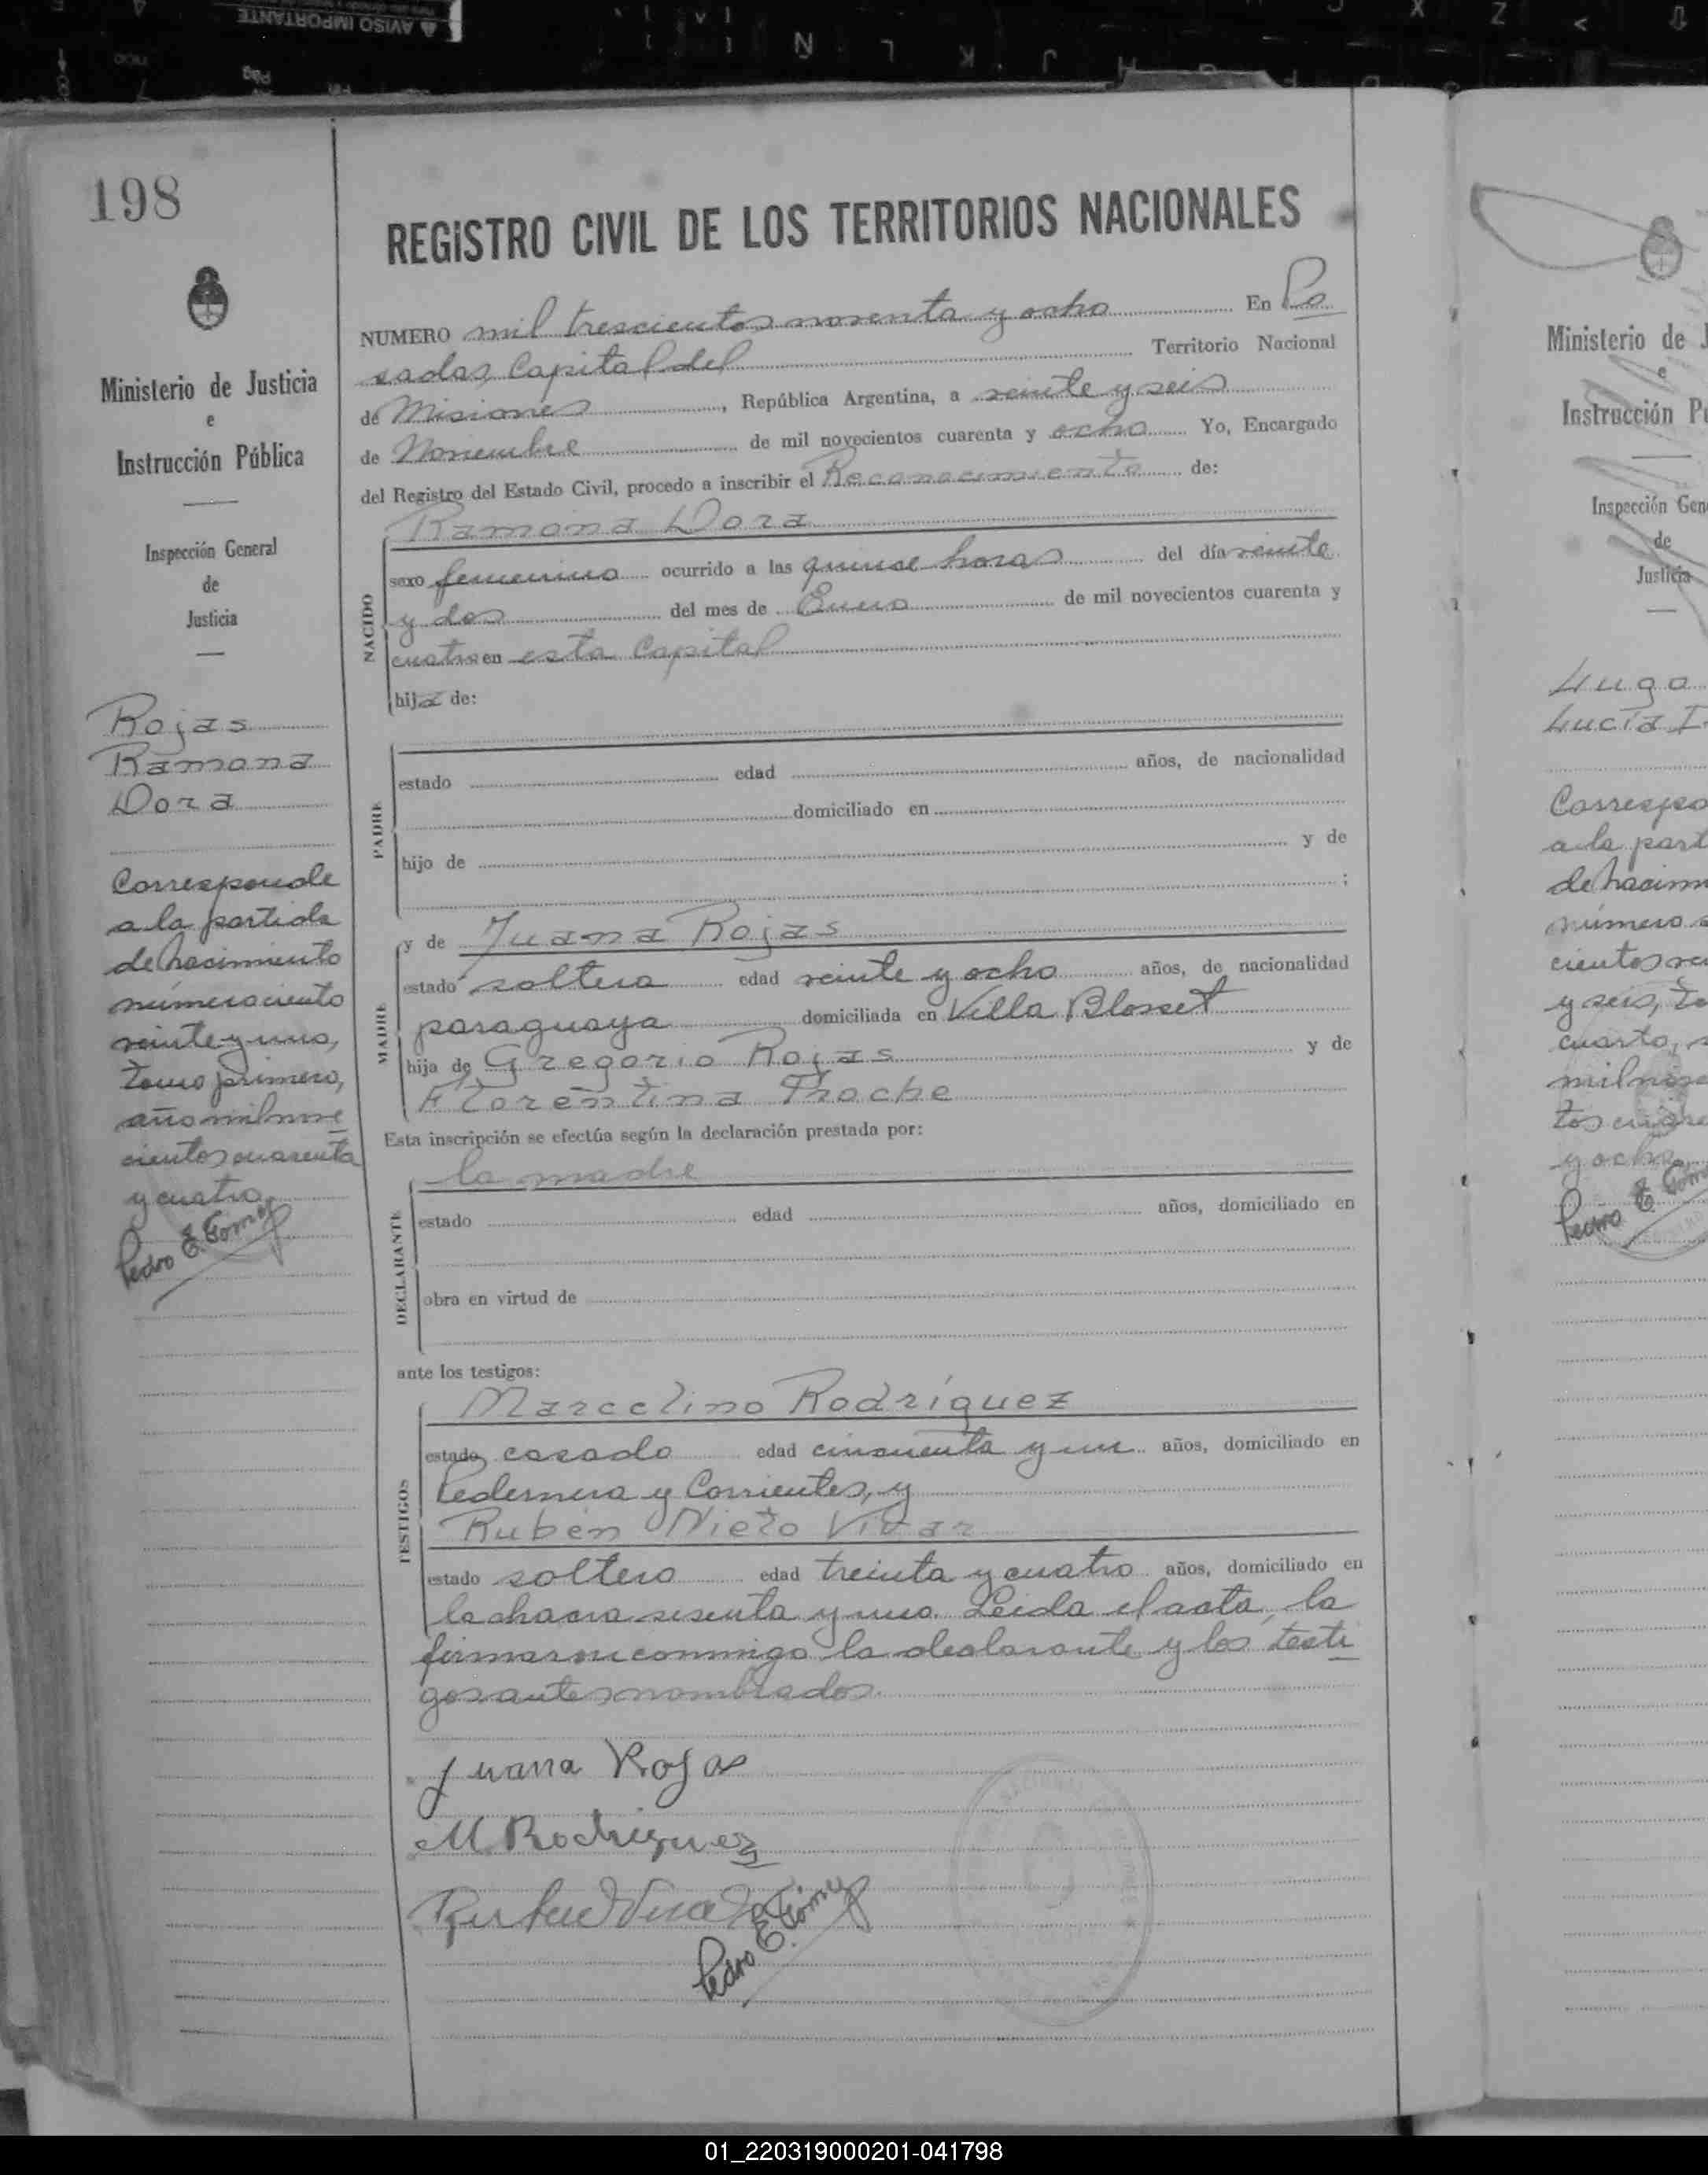 AVISO IMPORTANTE
198
Ministerio de Justicia
e
Instrucción Pública
Inspección General
de
Justicia
Rojas
Ramona
Dora
Corresponde
a la partida
de nacimiento
número ciento
veinte y uno,
tomo primero,
año mil nove
cientos cuarenta
y cuatro.
Pedro E. Gómez
REGISTRO CIVIL DE LOS TERRITORIOS NACIONALES
NUMERO mil trescientos noventa y ocho En Po
sadas, Capital del Territorio Nacional
de Misiones, República Argentina, a veinte y seis
de Noviembre de mil novecientos cuarenta y ocho Yo, Encargado
del Registro del Estado Civil, procedo a inscribir el Reconocimiento de:
Ramona Dora
NACIDO
sexo femenino ocurrido a las quince horas del día veinte
y dos del mes de Enero de mil novecientos cuarenta y
cuatro en esta Capital
hija de:
PADRE
estado edad años, de nacionalidad
domiciliado en
hijo de y de
;
MADRE
y de Juana Rojas
estado soltera edad veinte y ocho años, de nacionalidad
paraguaya domiciliada en Villa Blosset
hija de Gregorio Rojas y de
Florentina Troche
Esta inscripción se efectúa según la declaración prestada por:
la madre
DECLARANTE
estado edad años, domiciliado en
obra en virtud de
ante los testigos:
Marcelino Rodríguez
TESTIGOS
estado casado edad cincuenta y un años, domiciliado en
Pedernera y Corrientes, y
Rubén Nieto Vivar
estado soltero edad treinta y cuatro años, domiciliado en
la chacra sesenta y uno. Leida el acta, la
firmaron conmigo la declarante y los testi
gos antes nombrados.
Juana Rojas
M. Rodriguez
Pedro E. Gómez
Ministerio de J
e
Instrucción Pú
Inspección Gen
de
Justicia
Lugo
Lucía I
Correspo
a la part
de nacim
número
cientos ve
y seis, to
cuarto,
mil nove
tos cuare
y ocho
Pedro E. Góm
01_220319000201-041798